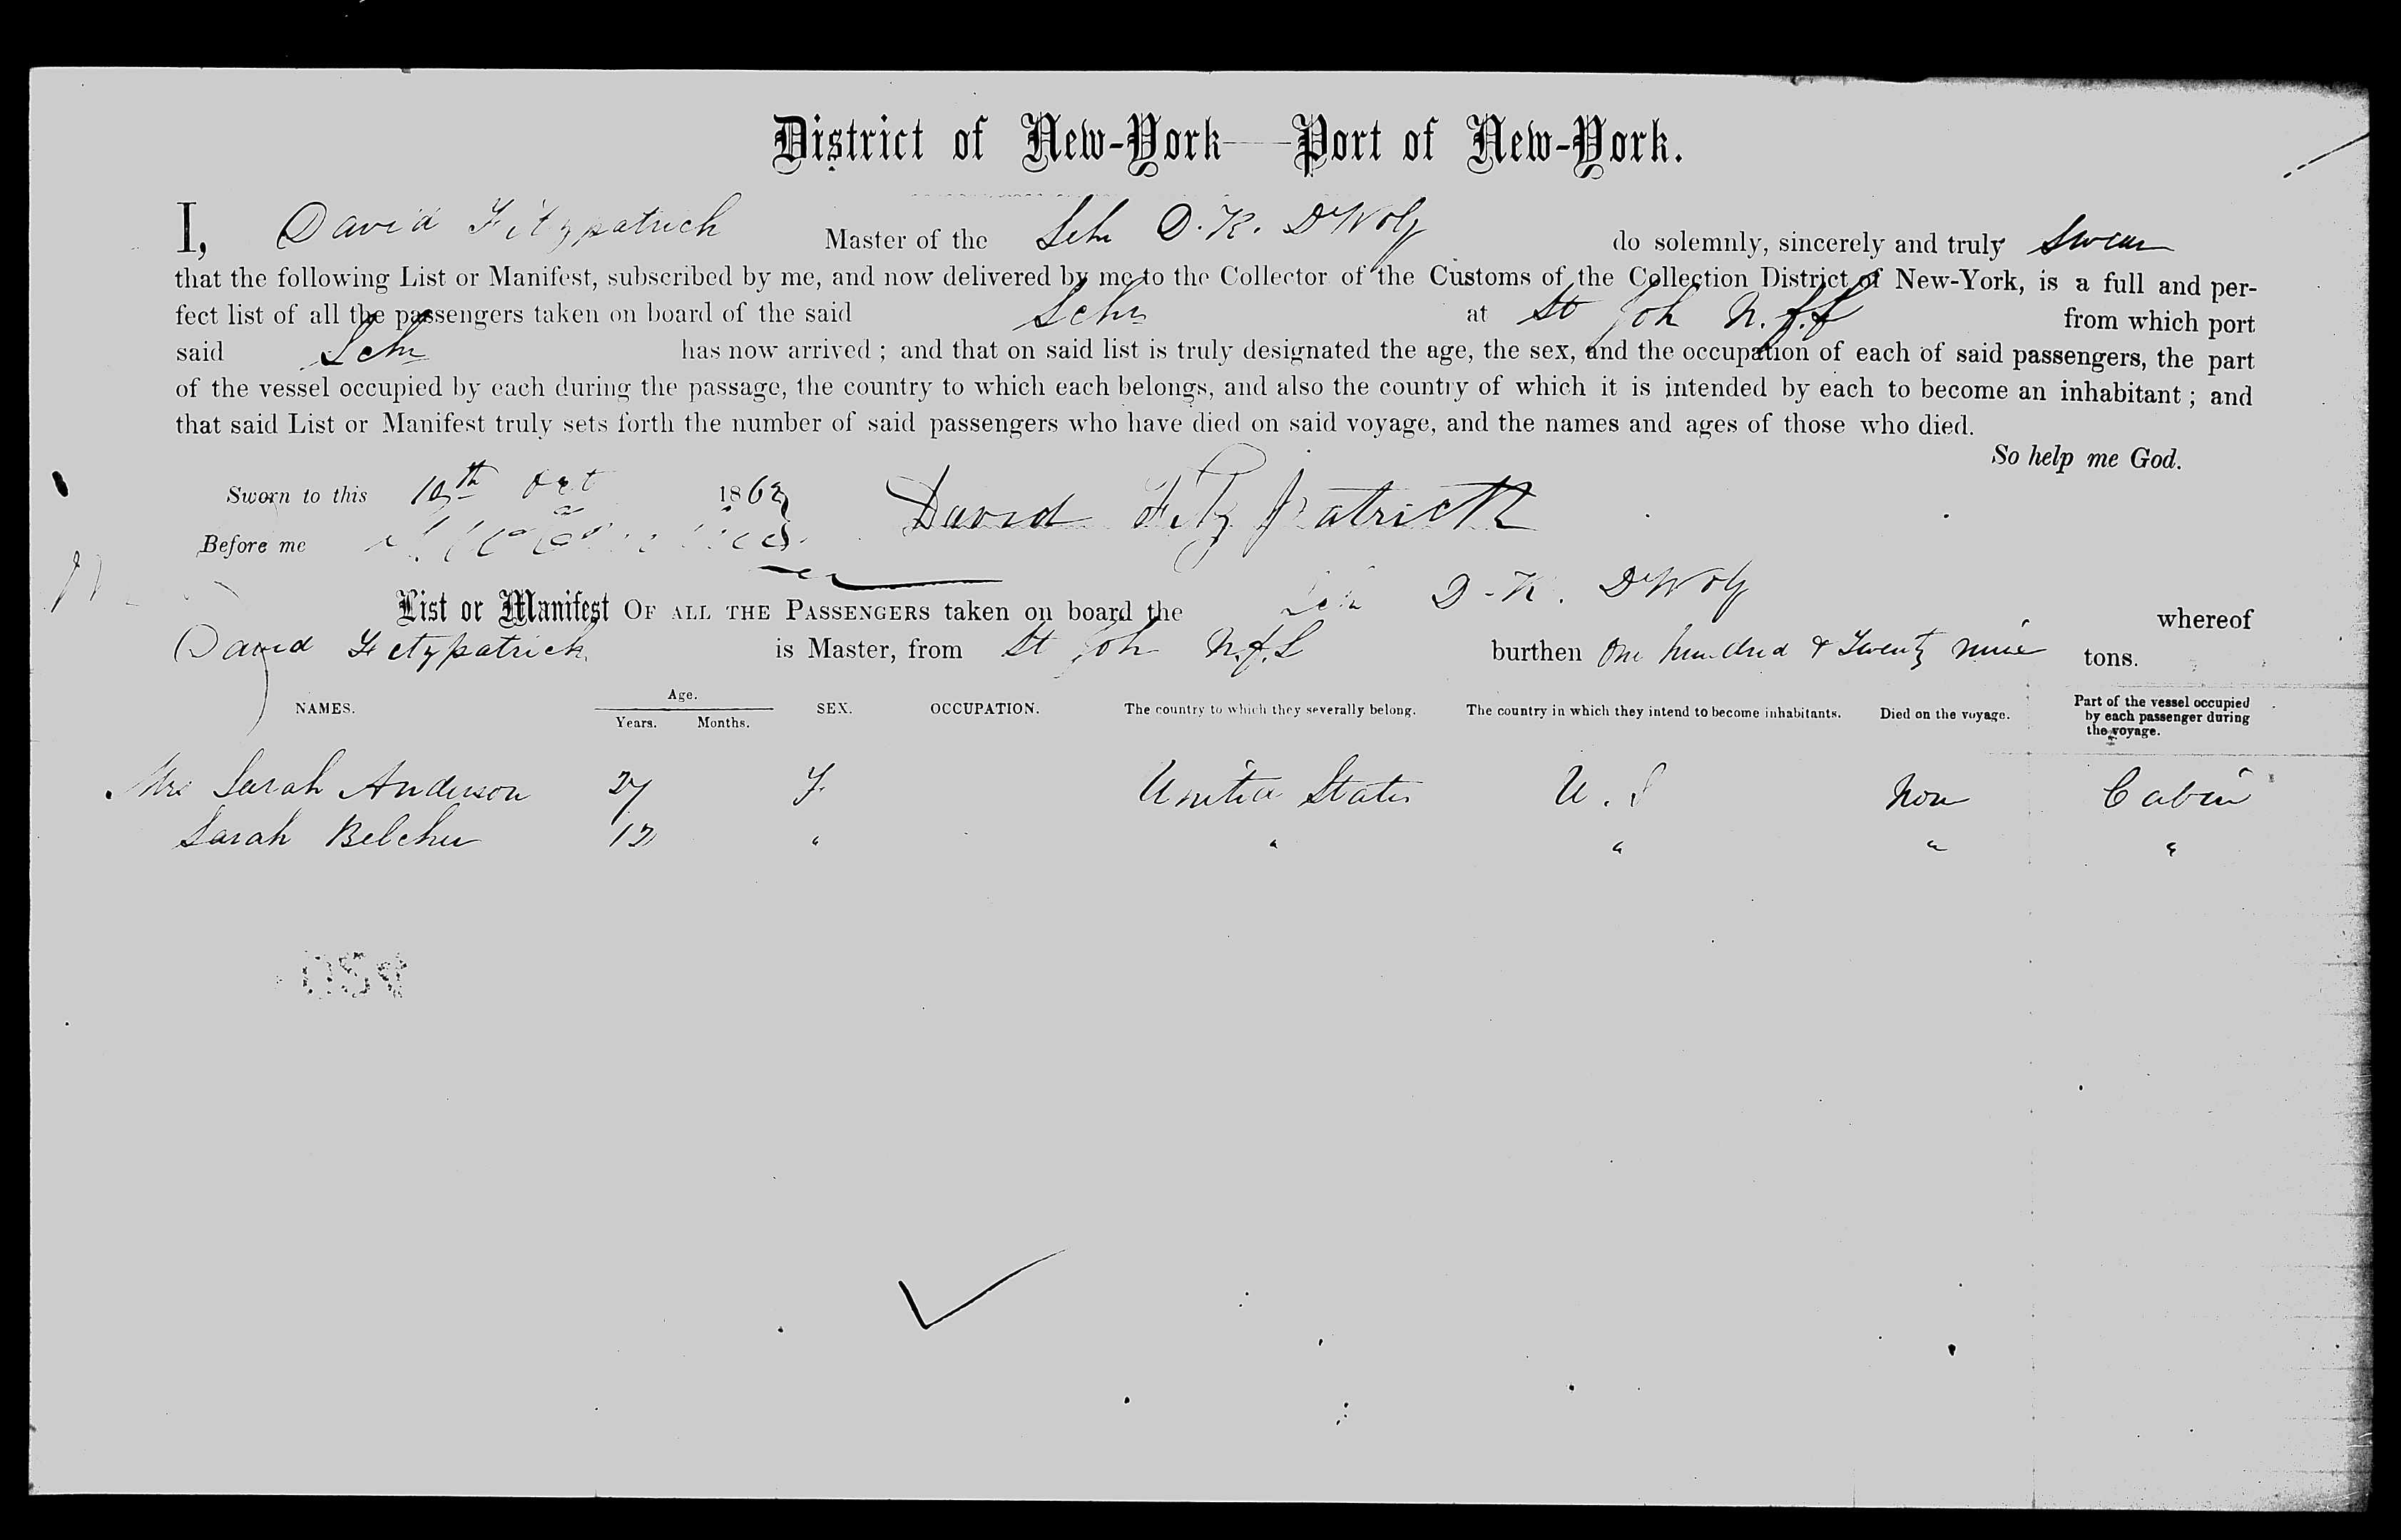 District of New-York—Port of New-York.
I, David Fitzpatrick Master of the Schr D. K. DeWolf do solemnly, sincerely and truly swear
that the following List or Manifest, subscribed by me, and now delivered by me to the Collector of the Customs of the Collection District of New-York, is a full and per-
fect list of all the passengers taken on board of the said Schr at St Joh N.f.l from which port
said Schr has now arrived ; and that on said list is truly designated the age, the sex, and the occupation of each of said passengers, the part
of the vessel occupied by each during the passage, the country to which each belongs, and also the country of which it is intended by each to become an inhabitant ; and
that said List or Manifest truly sets forth the number of said passengers who have died on said voyage, and the names and ages of those who died.
So help me God.
Sworn to this 10th Oct 186
David Fitz patrick
Before me
List or Manifest OF ALL THE PASSENGERS taken on board the Schr D. K. DeWolf whereof
David Fitzpatrick is Master, from St Joh N.f.L burthen One hundred & Twenty nine tons.
NAMES. Age. Years. Months. SEX. OCCUPATION. The country to which they severally belong. The country in which they intend to become inhabitants. Died on the voyage. Part of the vessel occupied by each passenger during the voyage.
Mrs Sarah Anderson 27 F United States U. S Non Cabin
Sarah Belcher 12 " " " " "